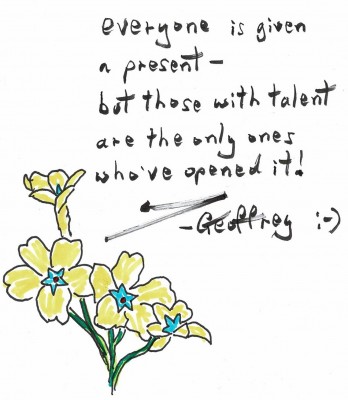 everyone is given
a present –
but those with talent
are the only ones
who've opened it!
- Geoffrey :-)